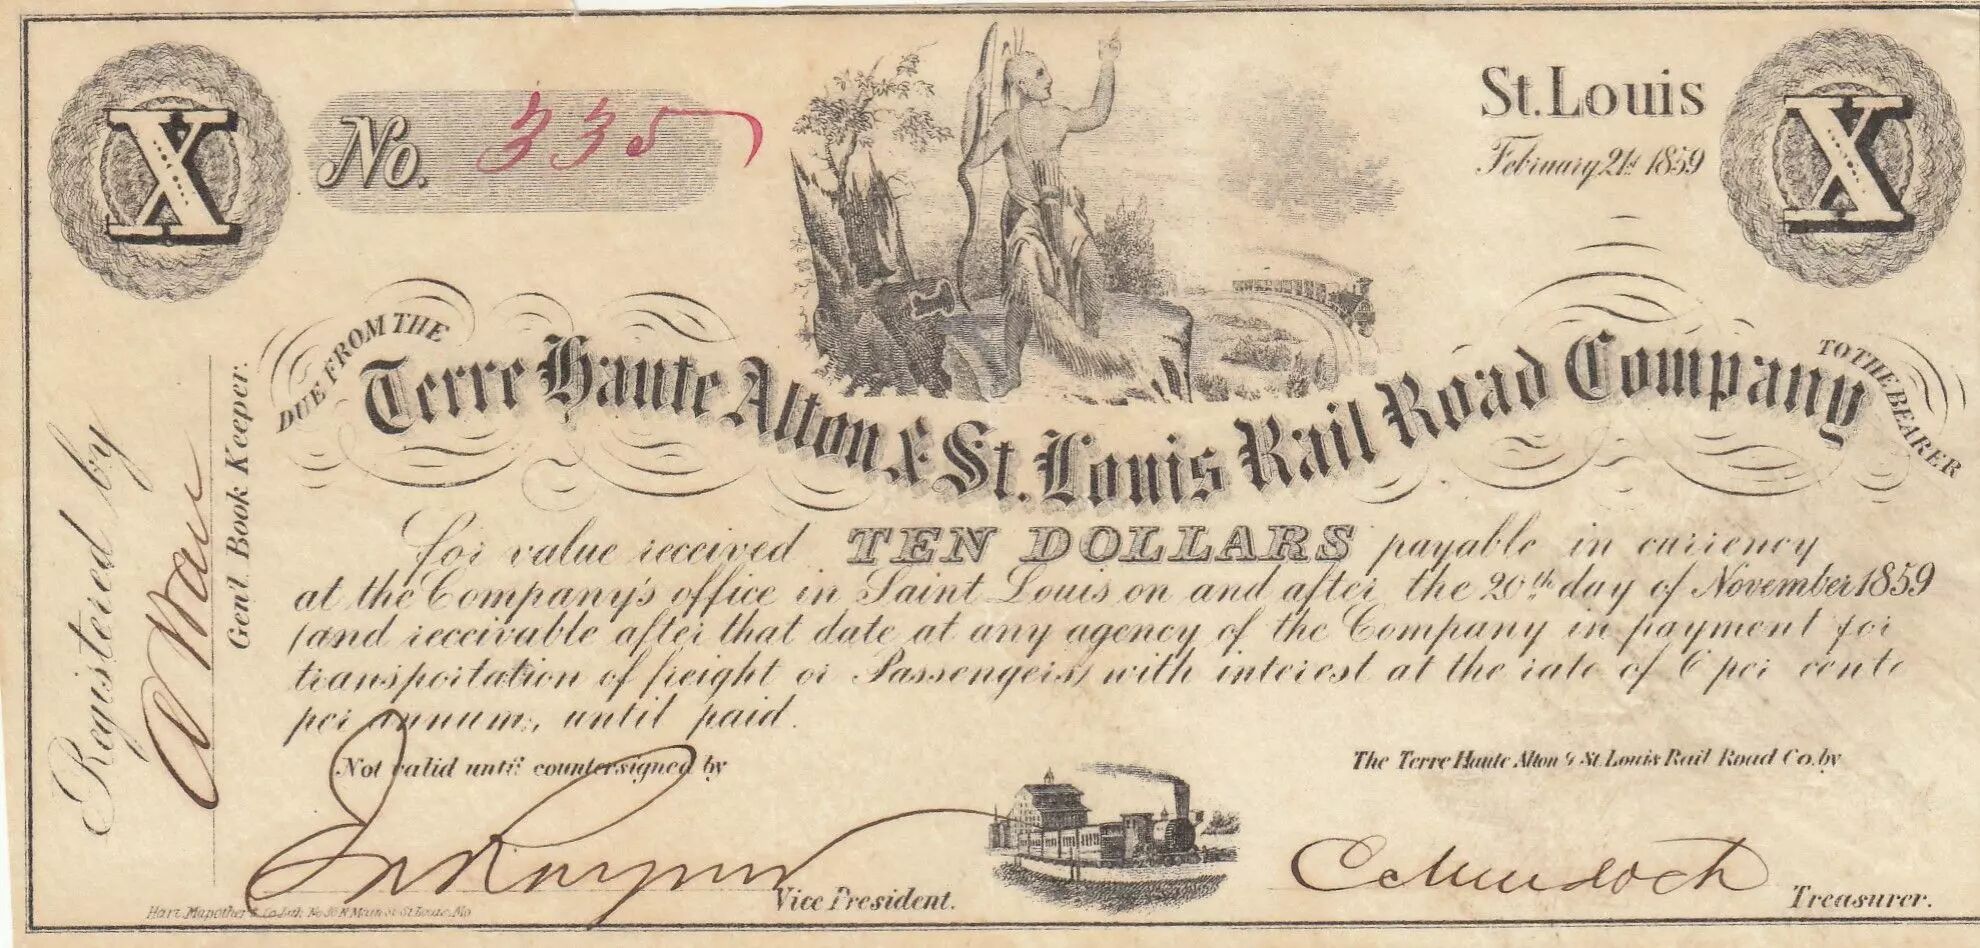 X
No. 335
St. Louis
February 21st 1859
X
DUE FROM THE
Terre Haute Alton & St. Louis Rail Road Company
TO THE BEARER
For value received TEN DOLLARS payable in currency
at the Company's office in Saint Louis on and after the 20th day of November 1859
(and receivable after that date at any agency of the Company in payment for
transportation of freight or Passengers) with interest at the rate of 6 per cent
per annum, until paid.
Registered by
Gen'l. Book Keeper.
Not valid until countersigned by
Vice President.
The Terre Haute Alton & St. Louis Rail Road Co. by
C Murdoch
Treasurer.
Hart Mapother & Co. Lith. No 36 N Main St St Louis, Mo